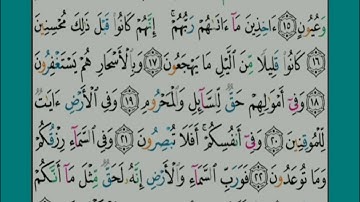 وَعُيُونٍ ﴿١٥﴾ ءَاخِذِينَ مَآ ءَاتَىٰهُمْ رَبُّهُمْ ۚ إِنَّهُمْ كَانُوا۟ قَبْلَ ذَٰلِكَ مُحْسِنِينَ
﴿١٦﴾ كَانُوا۟ قَلِيلًا مِّنَ ٱلَّيْلِ مَا يَهْجَعُونَ ﴿١٧﴾ وَبِٱلْأَسْحَارِ هُمْ يَسْتَغْفِرُونَ
﴿١٨﴾ وَفِىٓ أَمْوَٰلِهِمْ حَقٌّ لِّلسَّآئِلِ وَٱلْمَحْرُومِ ﴿١٩﴾ وَفِى ٱلْأَرْضِ ءَايَٰتٌ
لِّلْمُوقِنِينَ ﴿٢٠﴾ وَفِىٓ أَنفُسِكُمْ ۚ أَفَلَا تُبْصِرُونَ ﴿٢١﴾ وَفِى ٱلسَّمَآءِ رِزْقُكُمْ
وَمَا تُوعَدُونَ ﴿٢٢﴾ فَوَرَبِّ ٱلسَّمَآءِ وَٱلْأَرْضِ إِنَّهُۥ لَحَقٌّ مِّثْلَ مَآ أَنَّكُمْ